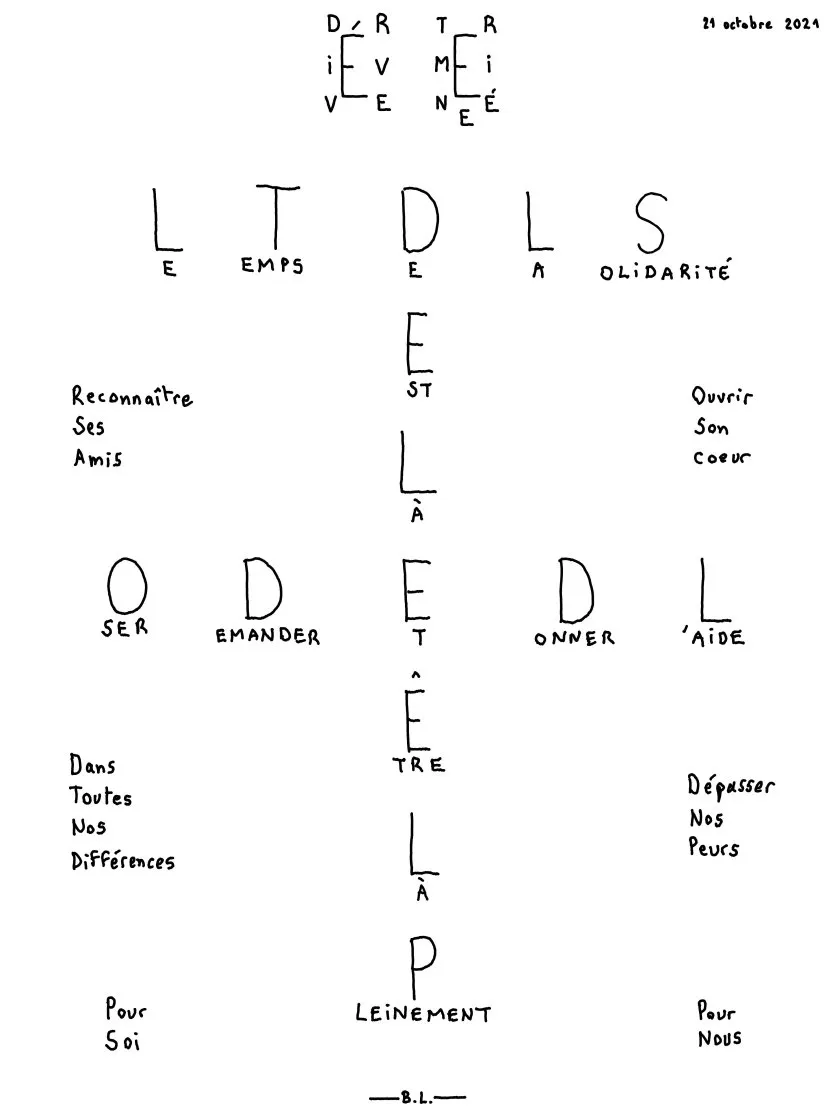 D É R T R
i V M E i
V E N É
E
21 octobre 2021
L T D L S
E EMPS E A OLiDARiTÉ
E
ST
Reconnaître
Ses
Amis
Ouvrir
Son
Coeur
L
À
O D E D L
SER EMANDER T ONNER 'AiDE
Ê
TRE
Dans
Toutes
Nos
Différences
Dépasser
Nos
Peurs
L
À
P
LEiNEMENT
Pour
Soi
Pour
NOUS
—B.L.—